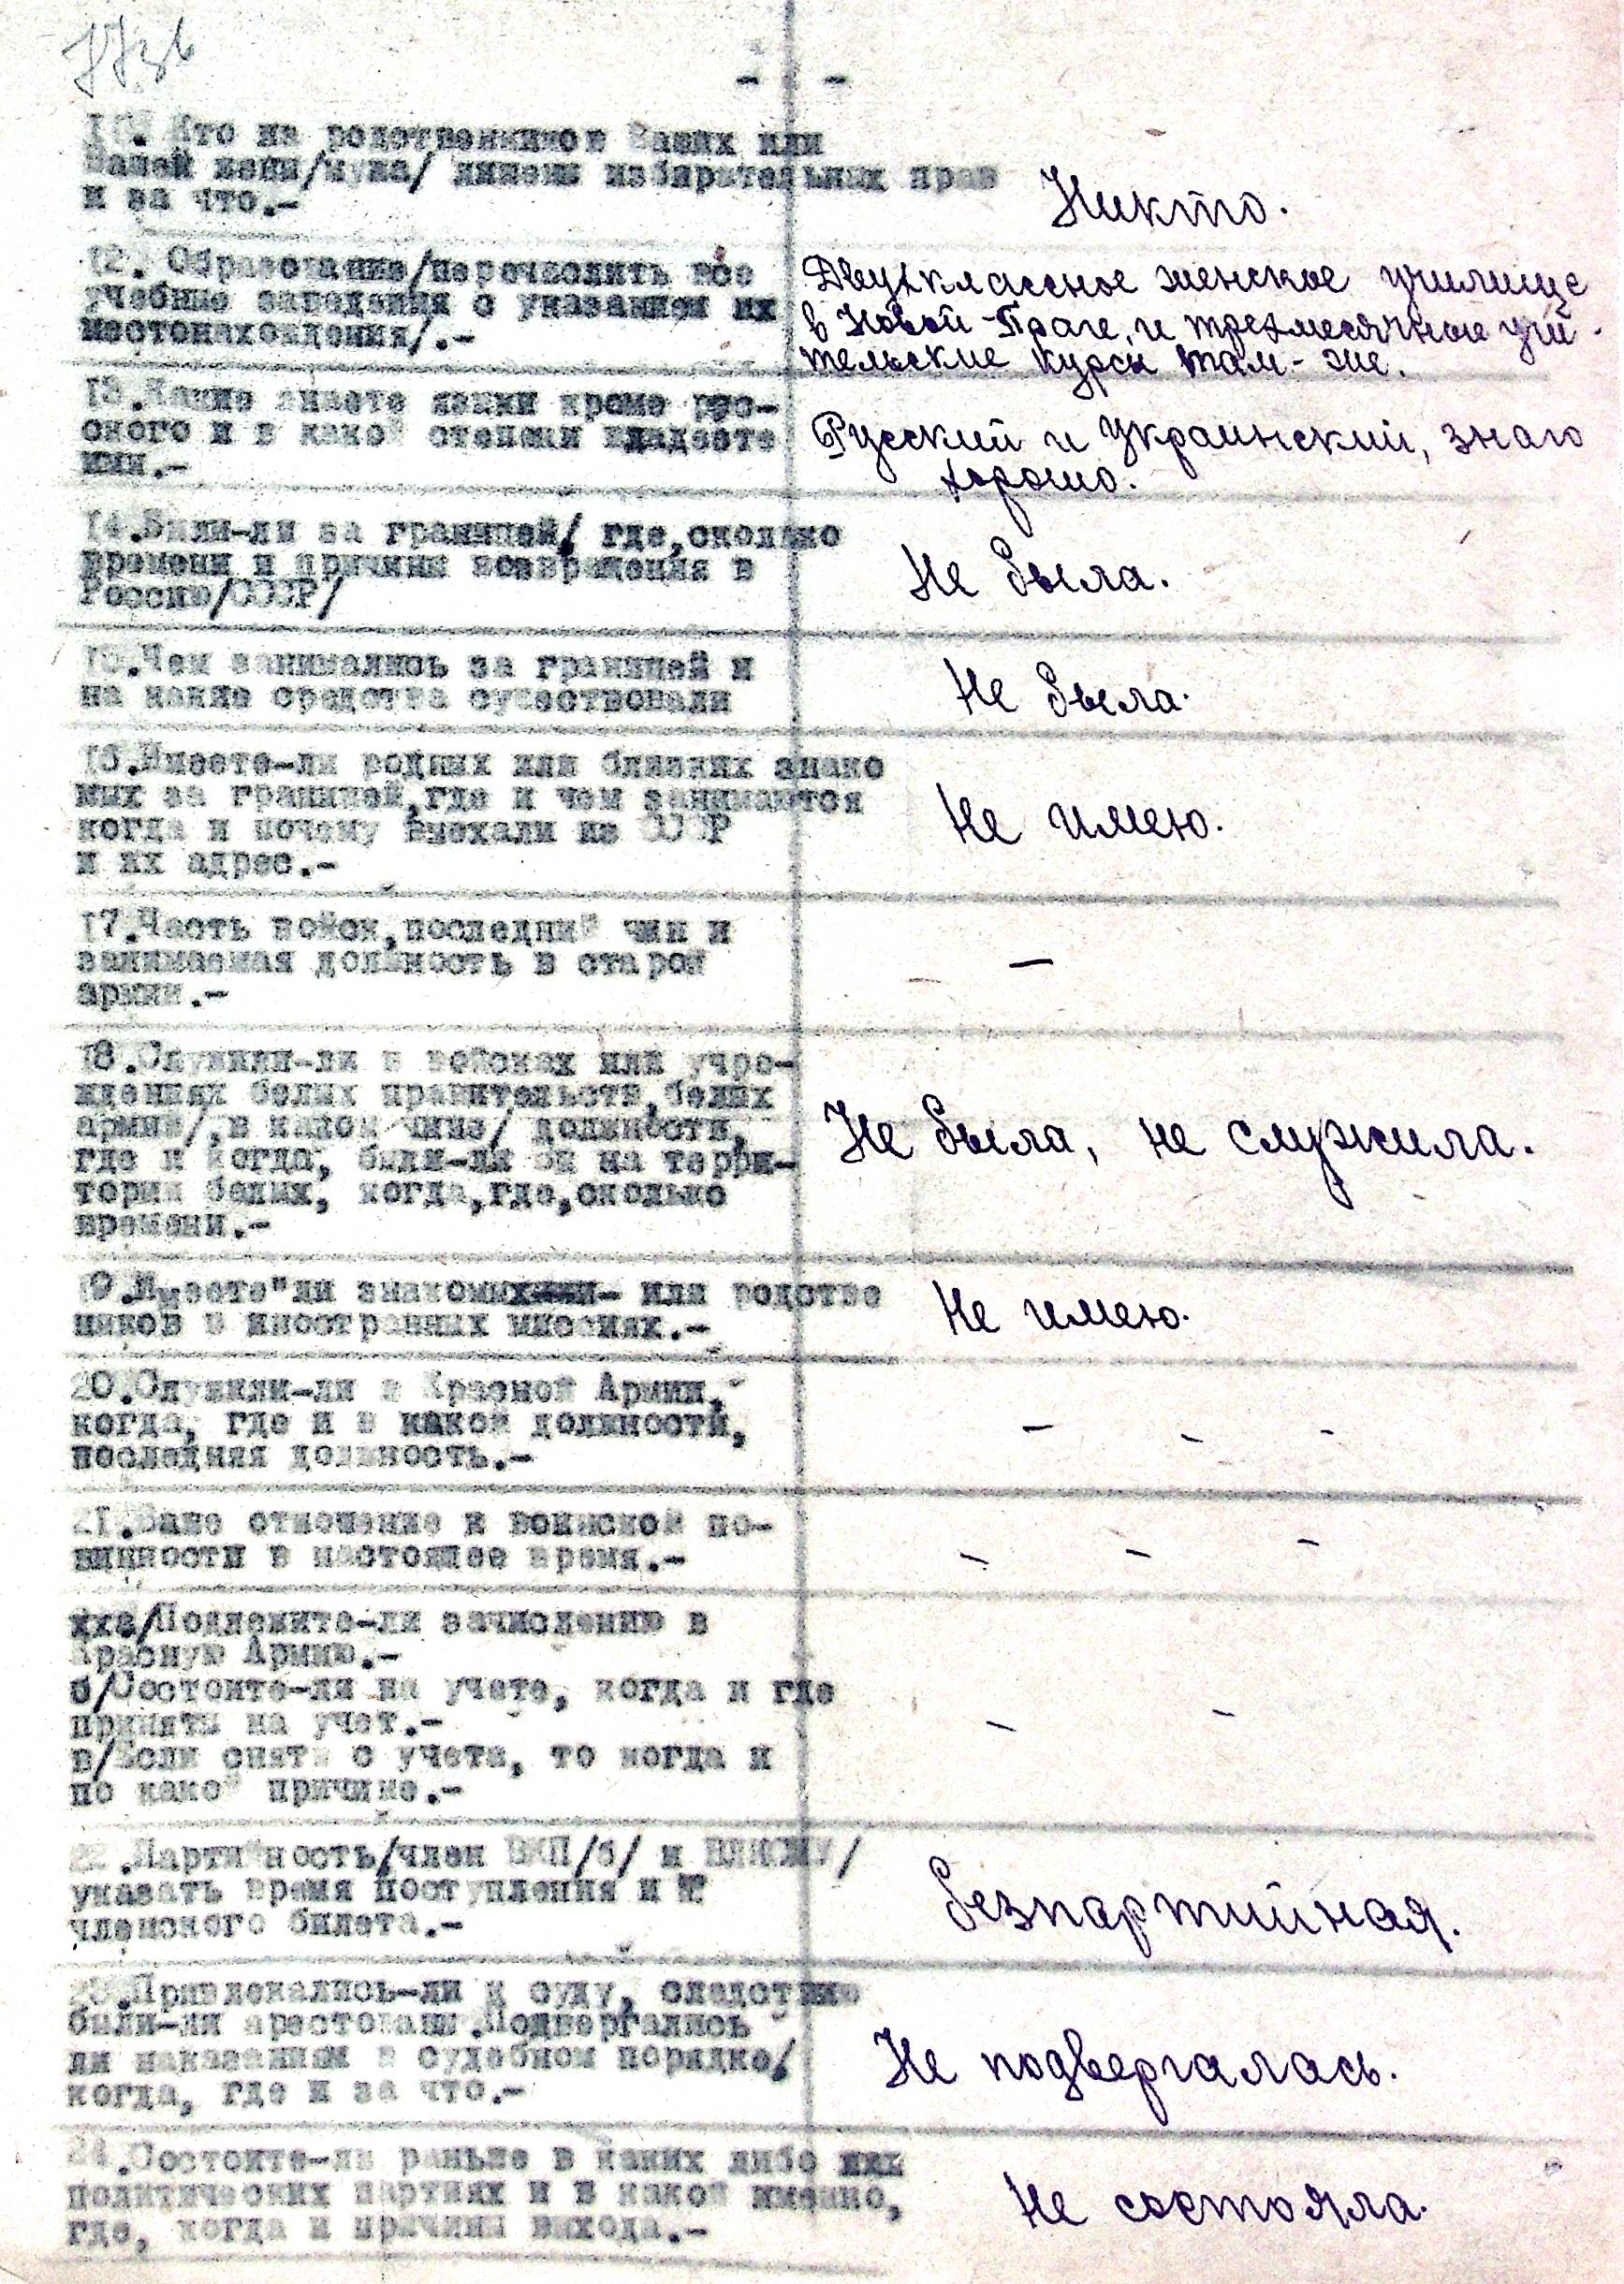 11. Кто из родственников Ваших или
Вашей жены/мужа/ лишены избирательных прав
и за что.-
Никто.
12. Образование/перечислить все
учебные заведения с указанием их
местонахождения/.-
Двухклассное женское училище
в Новой-Праге, и трехмесячные учи-
тельские курсы там-же.
13.Какие знаете языки кроме рус-
ского и в какой степени владеете
ими.-
Русский и украинский, знаю
хорошо.
14.Были-ли за границей/ где,сколько
времени и причины возвращения в
Россию/СССР/
Не была.
15.Чем занимались за границей и
на какие средства существовали
Не была.
16.Имеете-ли родных или близких знако
мых за границей,где и чем занимаются
когда и почему выехали из СССР
и их адрес.-
Не имею.
17.Часть войск,последний чин и
занимаемая должность в старой
армии.-
—
18.Служили-ли в войсках или учре-
ждениях белых правительств,белых
армий/,в каком чине/ должности,
где и когда, были-ли вы на терри-
тории белых, когда,где,сколько
времени.-
Не была, не служила.
19.Имеете"ли знакомых или родстве
нников в иностранных миссиях.-
Не имею.
20.Служили-ли в Красной Армии,
когда, где и в какой должности,
последняя должность.-
- - -
21.Ваше отношение к воинской по-
винности в настоящее время.-
- - -
а/Подлежите-ли зачислению в
Красную Армию.-
б/Состоите-ли на учете, когда и где
приняты на учет.-
в/Если сняты с учета, то когда и
по какой причине.-
- -
22.Партийность/член ВКП/б/ и ЛКСМУ/
указать время поступления и №
членского билета.-
Безпартийная.
23.Привлекались-ли к суду, следствию
были-ли арестованы.Подвергались
ли наказаниям в судебном порядке/
когда, где и за что.-
Не подвергалась.
24.Состоите-ли раньше в каких либо
политических партиях и в какой именно,
где, когда и причины выхода.-
Не состояла.